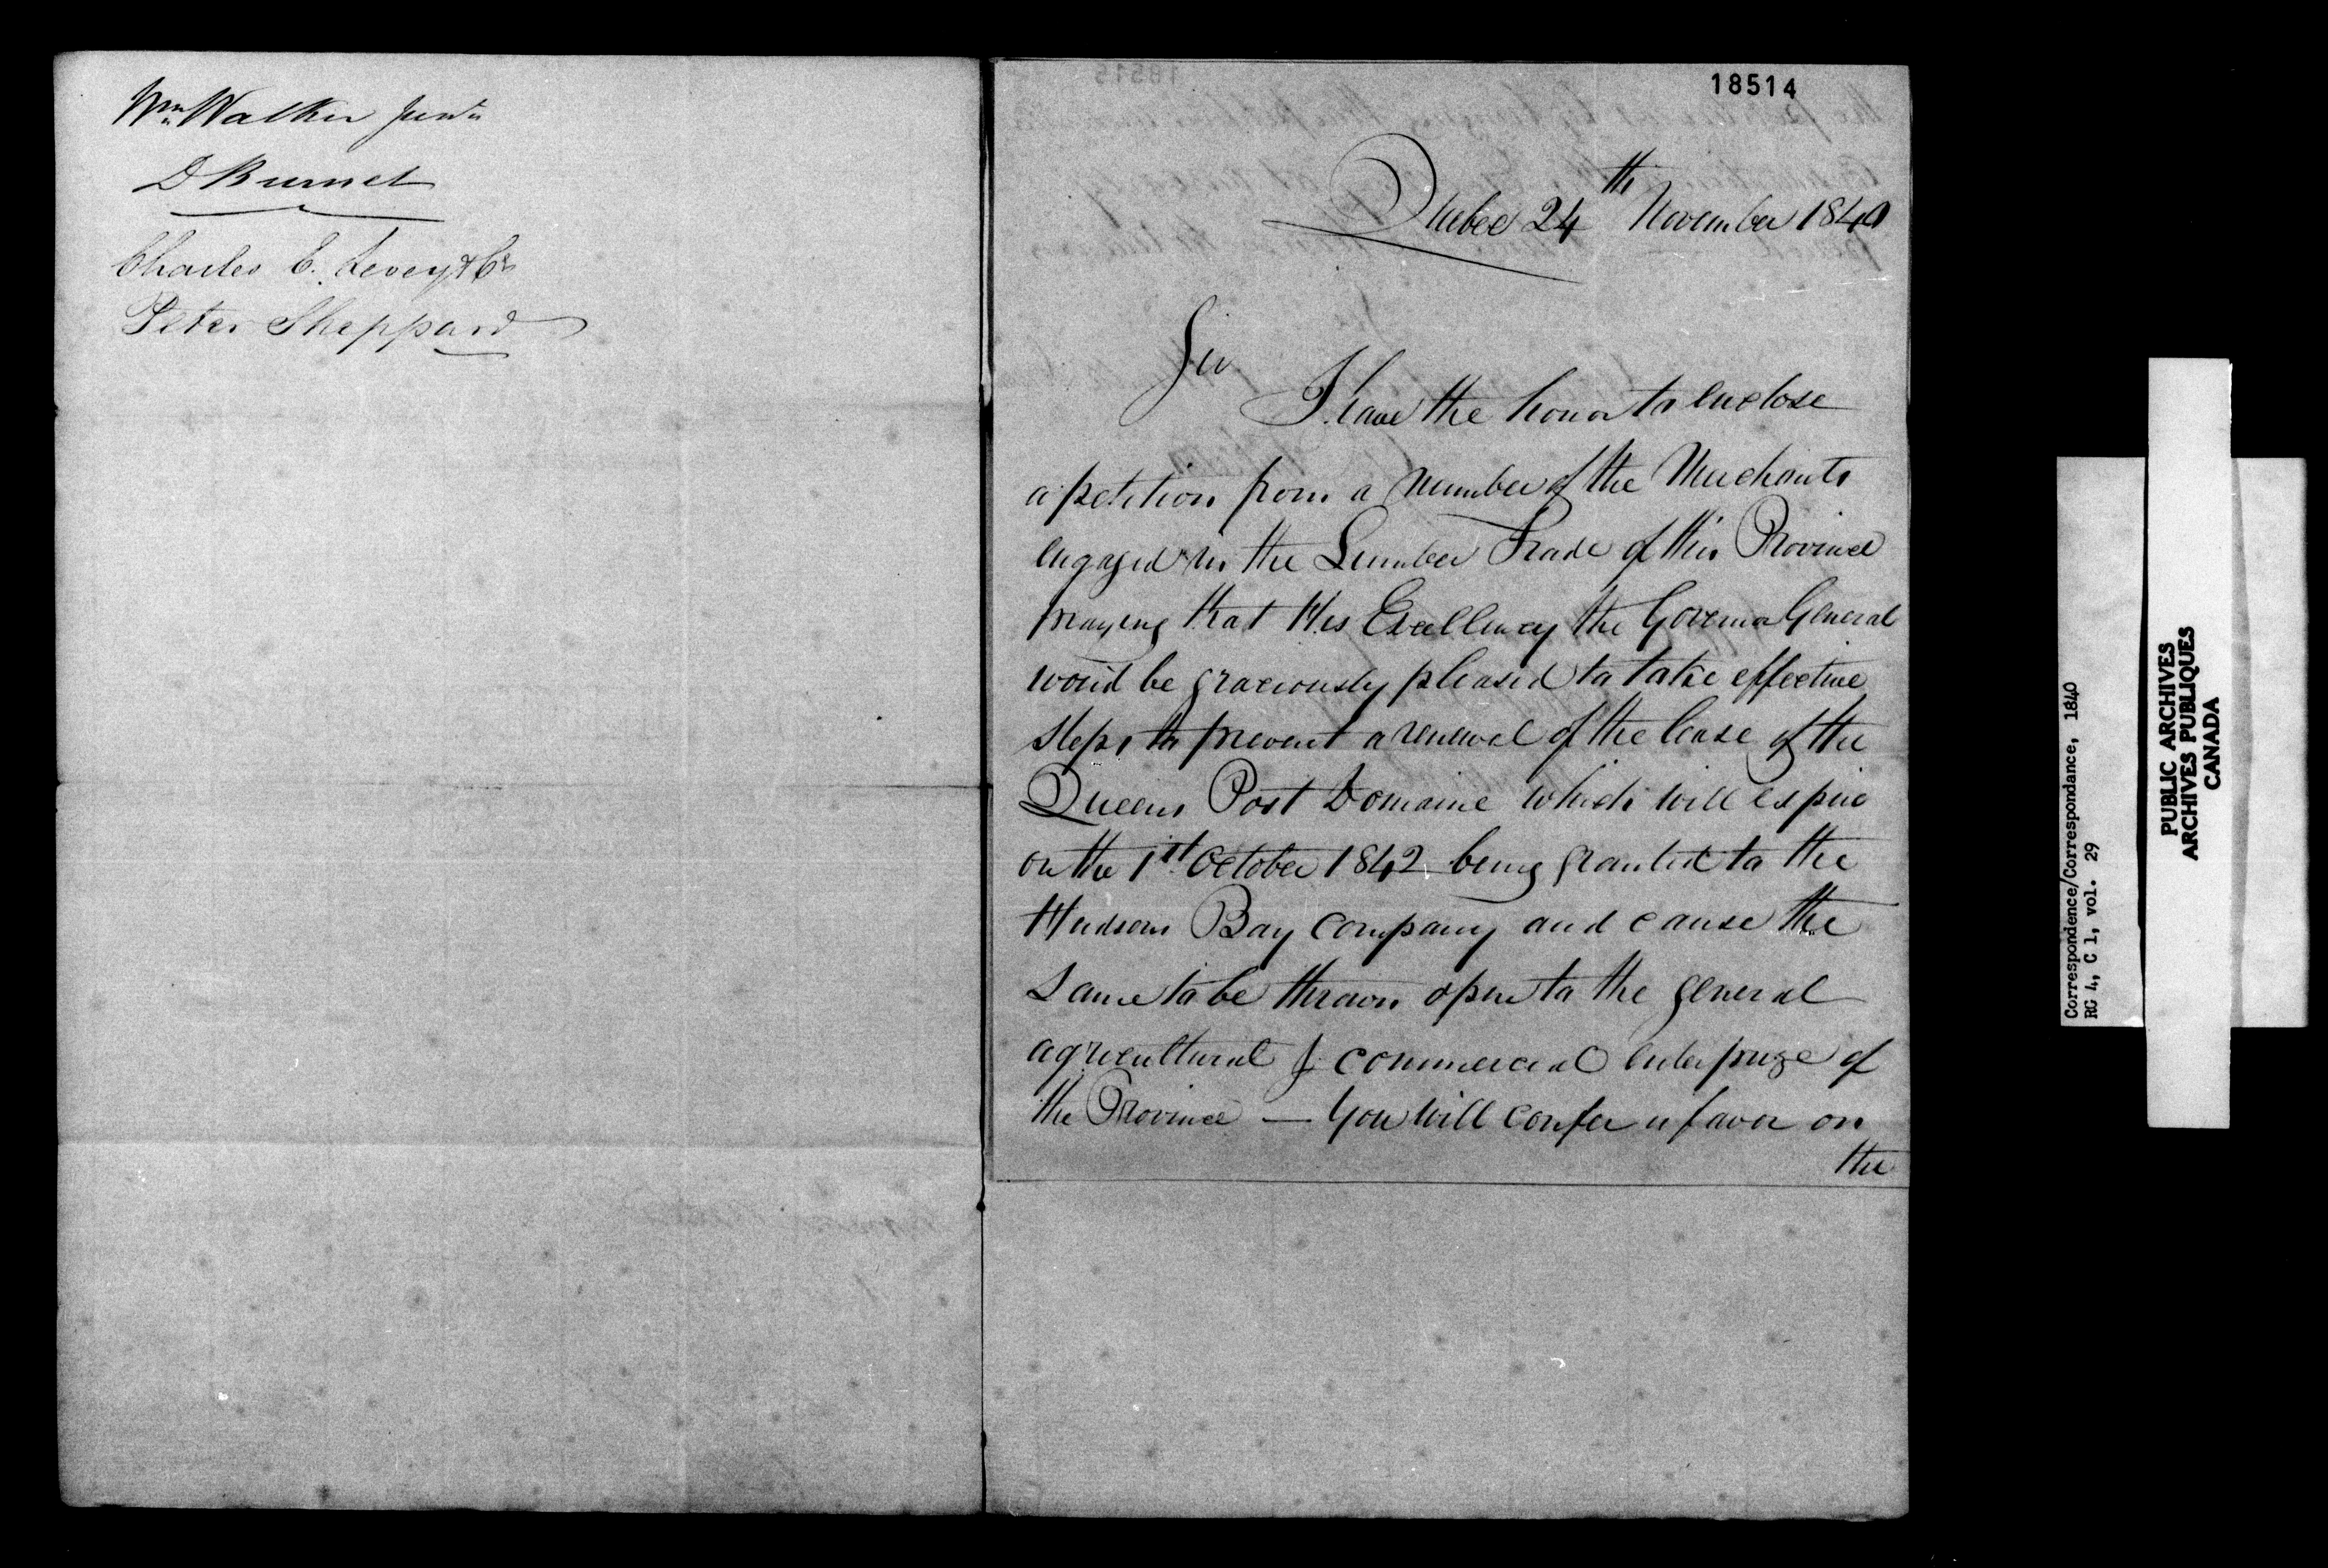 Wm Walker Junr
D Burnet
Charles E. Levey & Co
Peter Sheppard
18514
Quebec 24th November 1840
Sir
I have the honor to enclose
a petition from a number of the Merchants
engaged in the Lumber Trade of this Province
praying that His Excellency the Governor General
would be graciously pleased to take effective
steps to prevent a renewal of the lease of the
Queens Post Domaine which will expire
on the 1st October 1842 being granted to the
Hudsons Bay Company and cause the
same to be thrown open to the general
agricultural & commercial enterprize of
the Province — You will confer a favor on
the
Correspondence/Correspondance, 1840
RG 4, C 1, vol. 29
PUBLIC ARCHIVES
ARCHIVES PUBLIQUES
CANADA